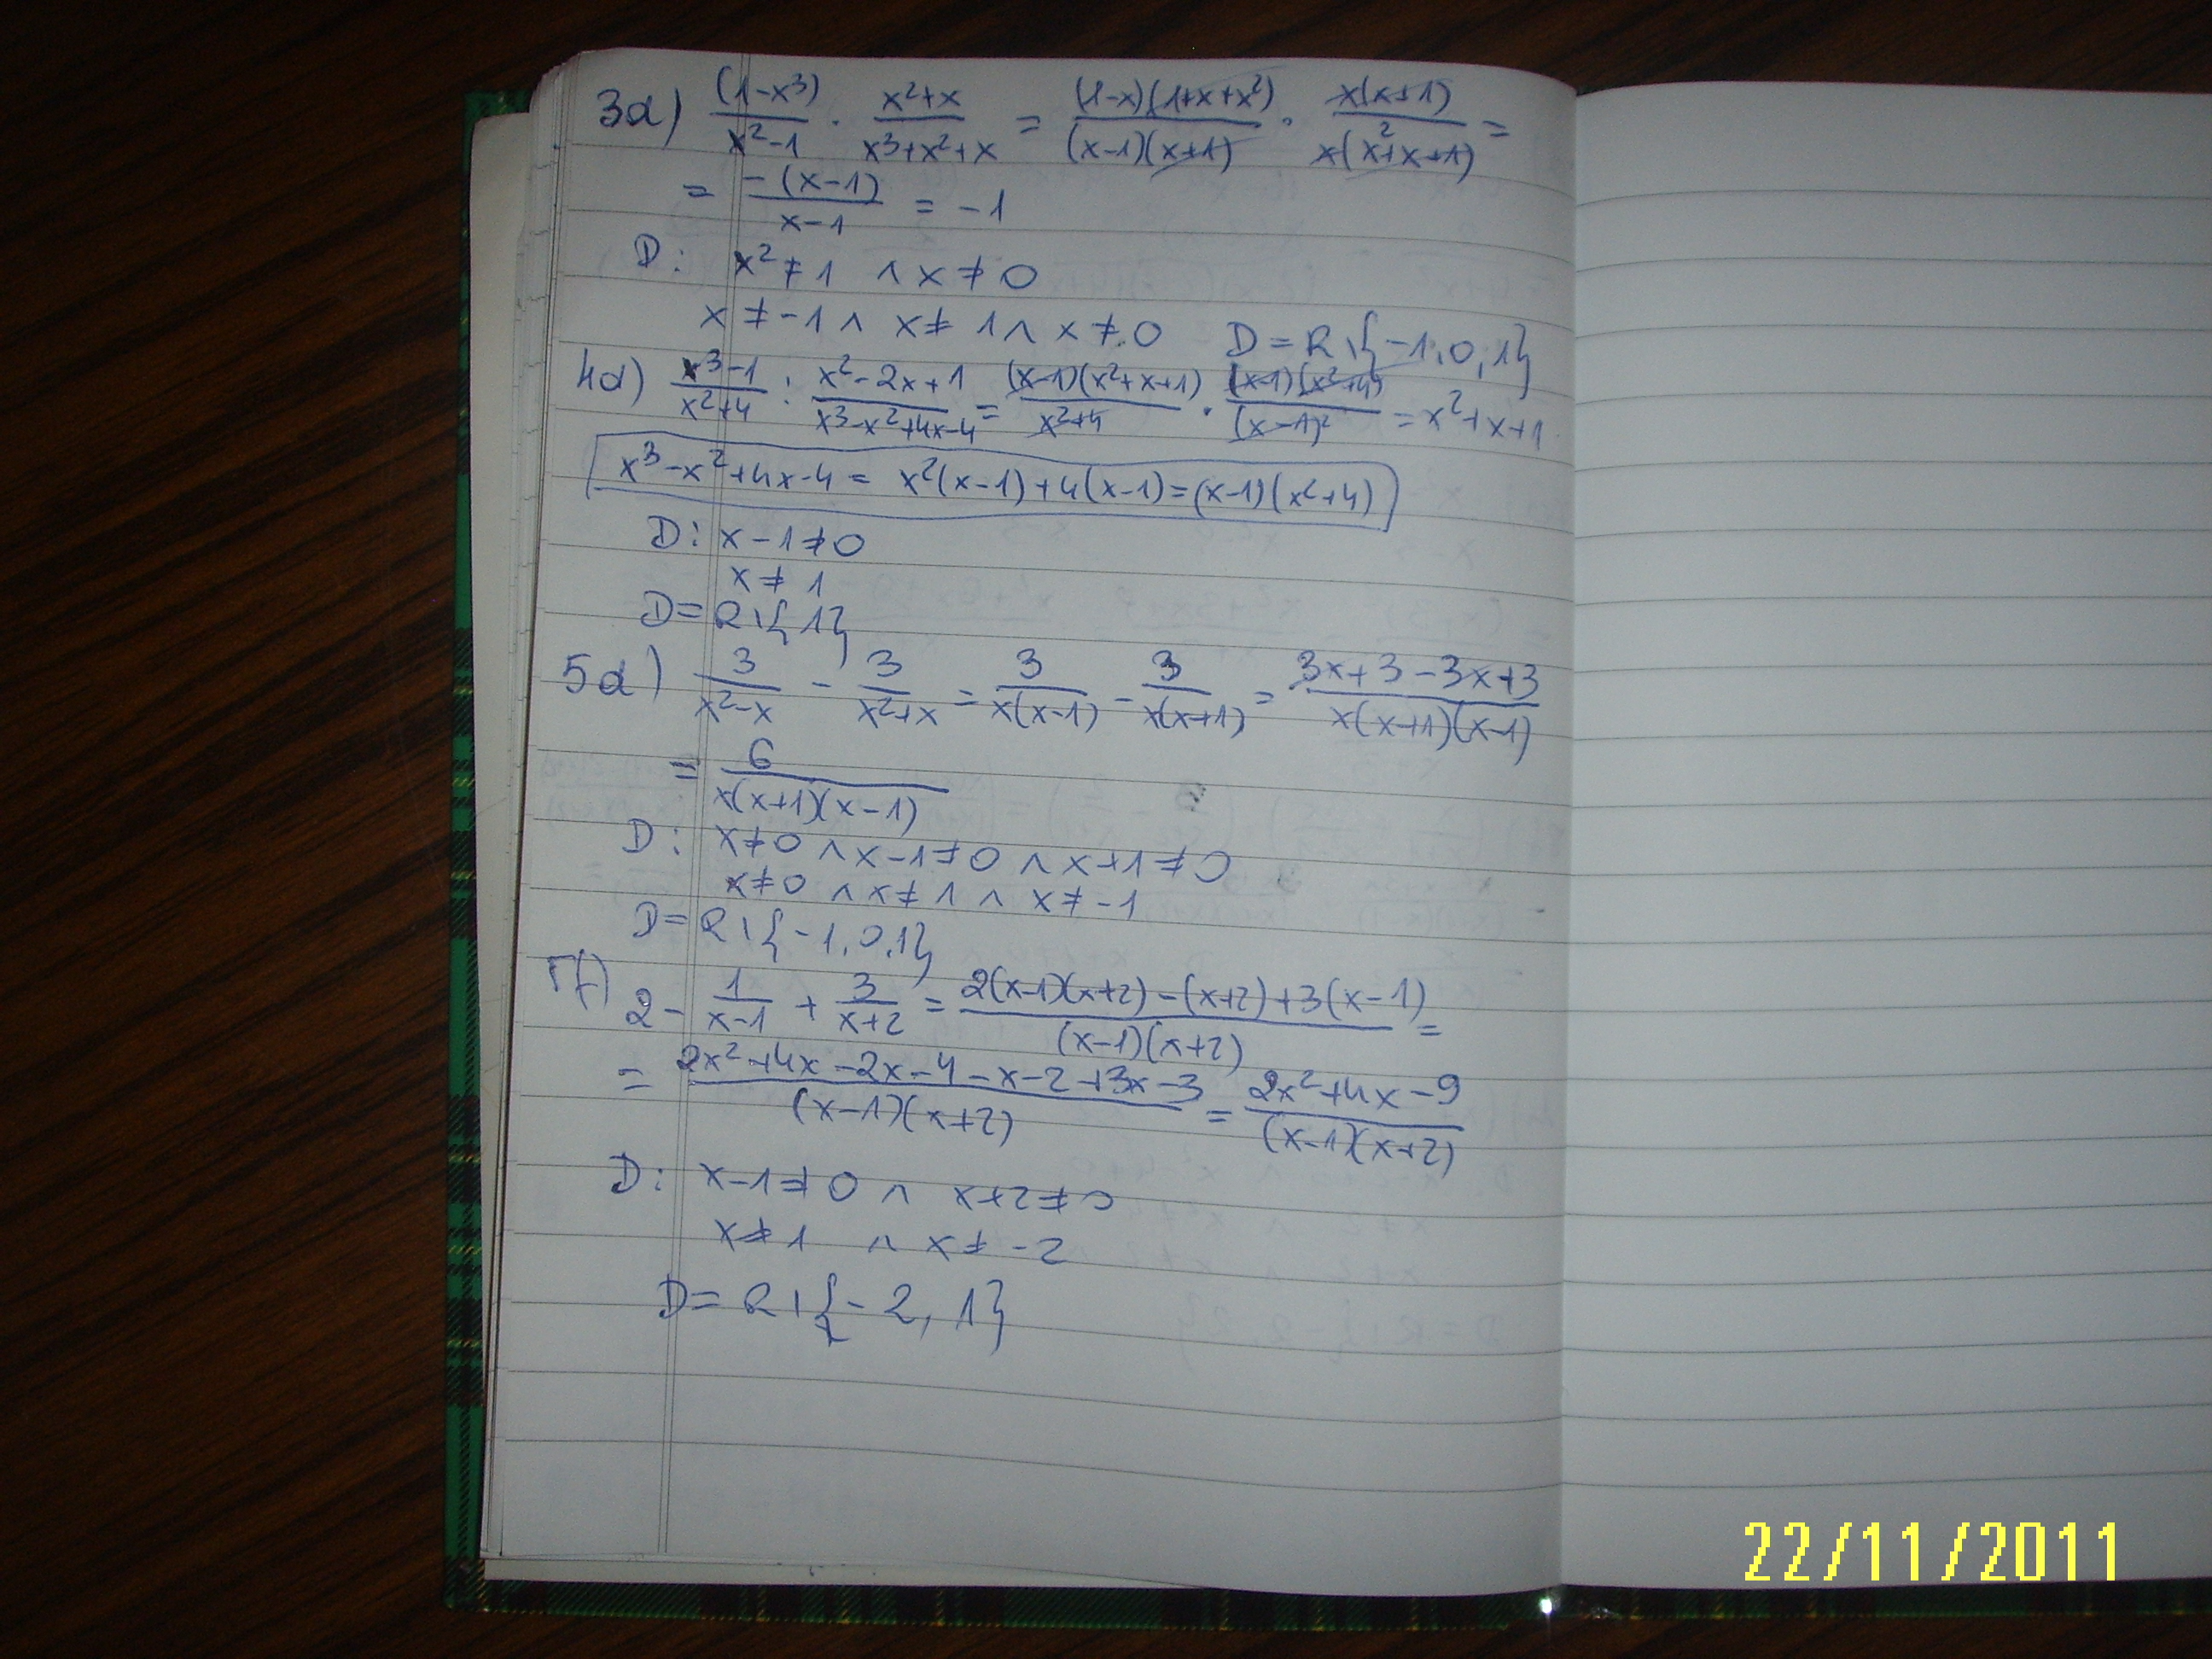 3d) (1-x³)/(x²-1) · (x²+x)/(x³+x²+x) = (1-x)(1+x+x²)/(x-1)(x+1) · x(x+1)/x(x²+x+1) =
= -(x-1)/(x-1) = -1
D: x² ≠ 1 ∧ x ≠ 0
x ≠ -1 ∧ x ≠ 1 ∧ x ≠ 0 D = R \ {-1, 0, 1}
4d) (x³-1)/(x²+4) : (x²-2x+1)/(x³-x²+4x-4) = (x-1)(x²+x+1)/(x²+4) · (x-1)(x²+4)/(x-1)² = x²+x+1
x³-x²+4x-4 = x²(x-1)+4(x-1) = (x-1)(x²+4)
D: x-1 ≠ 0
x ≠ 1
D = R \ {1}
5d) 3/(x²-x) - 3/(x²+x) = 3/x(x-1) - 3/x(x+1) = (3x+3-3x+3)/x(x+1)(x-1)
= 6/x(x+1)(x-1)
D: x ≠ 0 ∧ x-1 ≠ 0 ∧ x+1 ≠ 0
x ≠ 0 ∧ x ≠ 1 ∧ x ≠ -1
D = R \ {-1, 0, 1}
f) 2 - 1/(x-1) + 3/(x+2) = (2(x-1)(x+2)-(x+2)+3(x-1))/(x-1)(x+2) =
= (2x²+4x-2x-4-x-2+3x-3)/(x-1)(x+2) = (2x²+4x-9)/(x-1)(x+2)
D: x-1 ≠ 0 ∧ x+2 ≠ 0
x ≠ 1 ∧ x ≠ -2
D = R \ {-2, 1}
22/11/2011